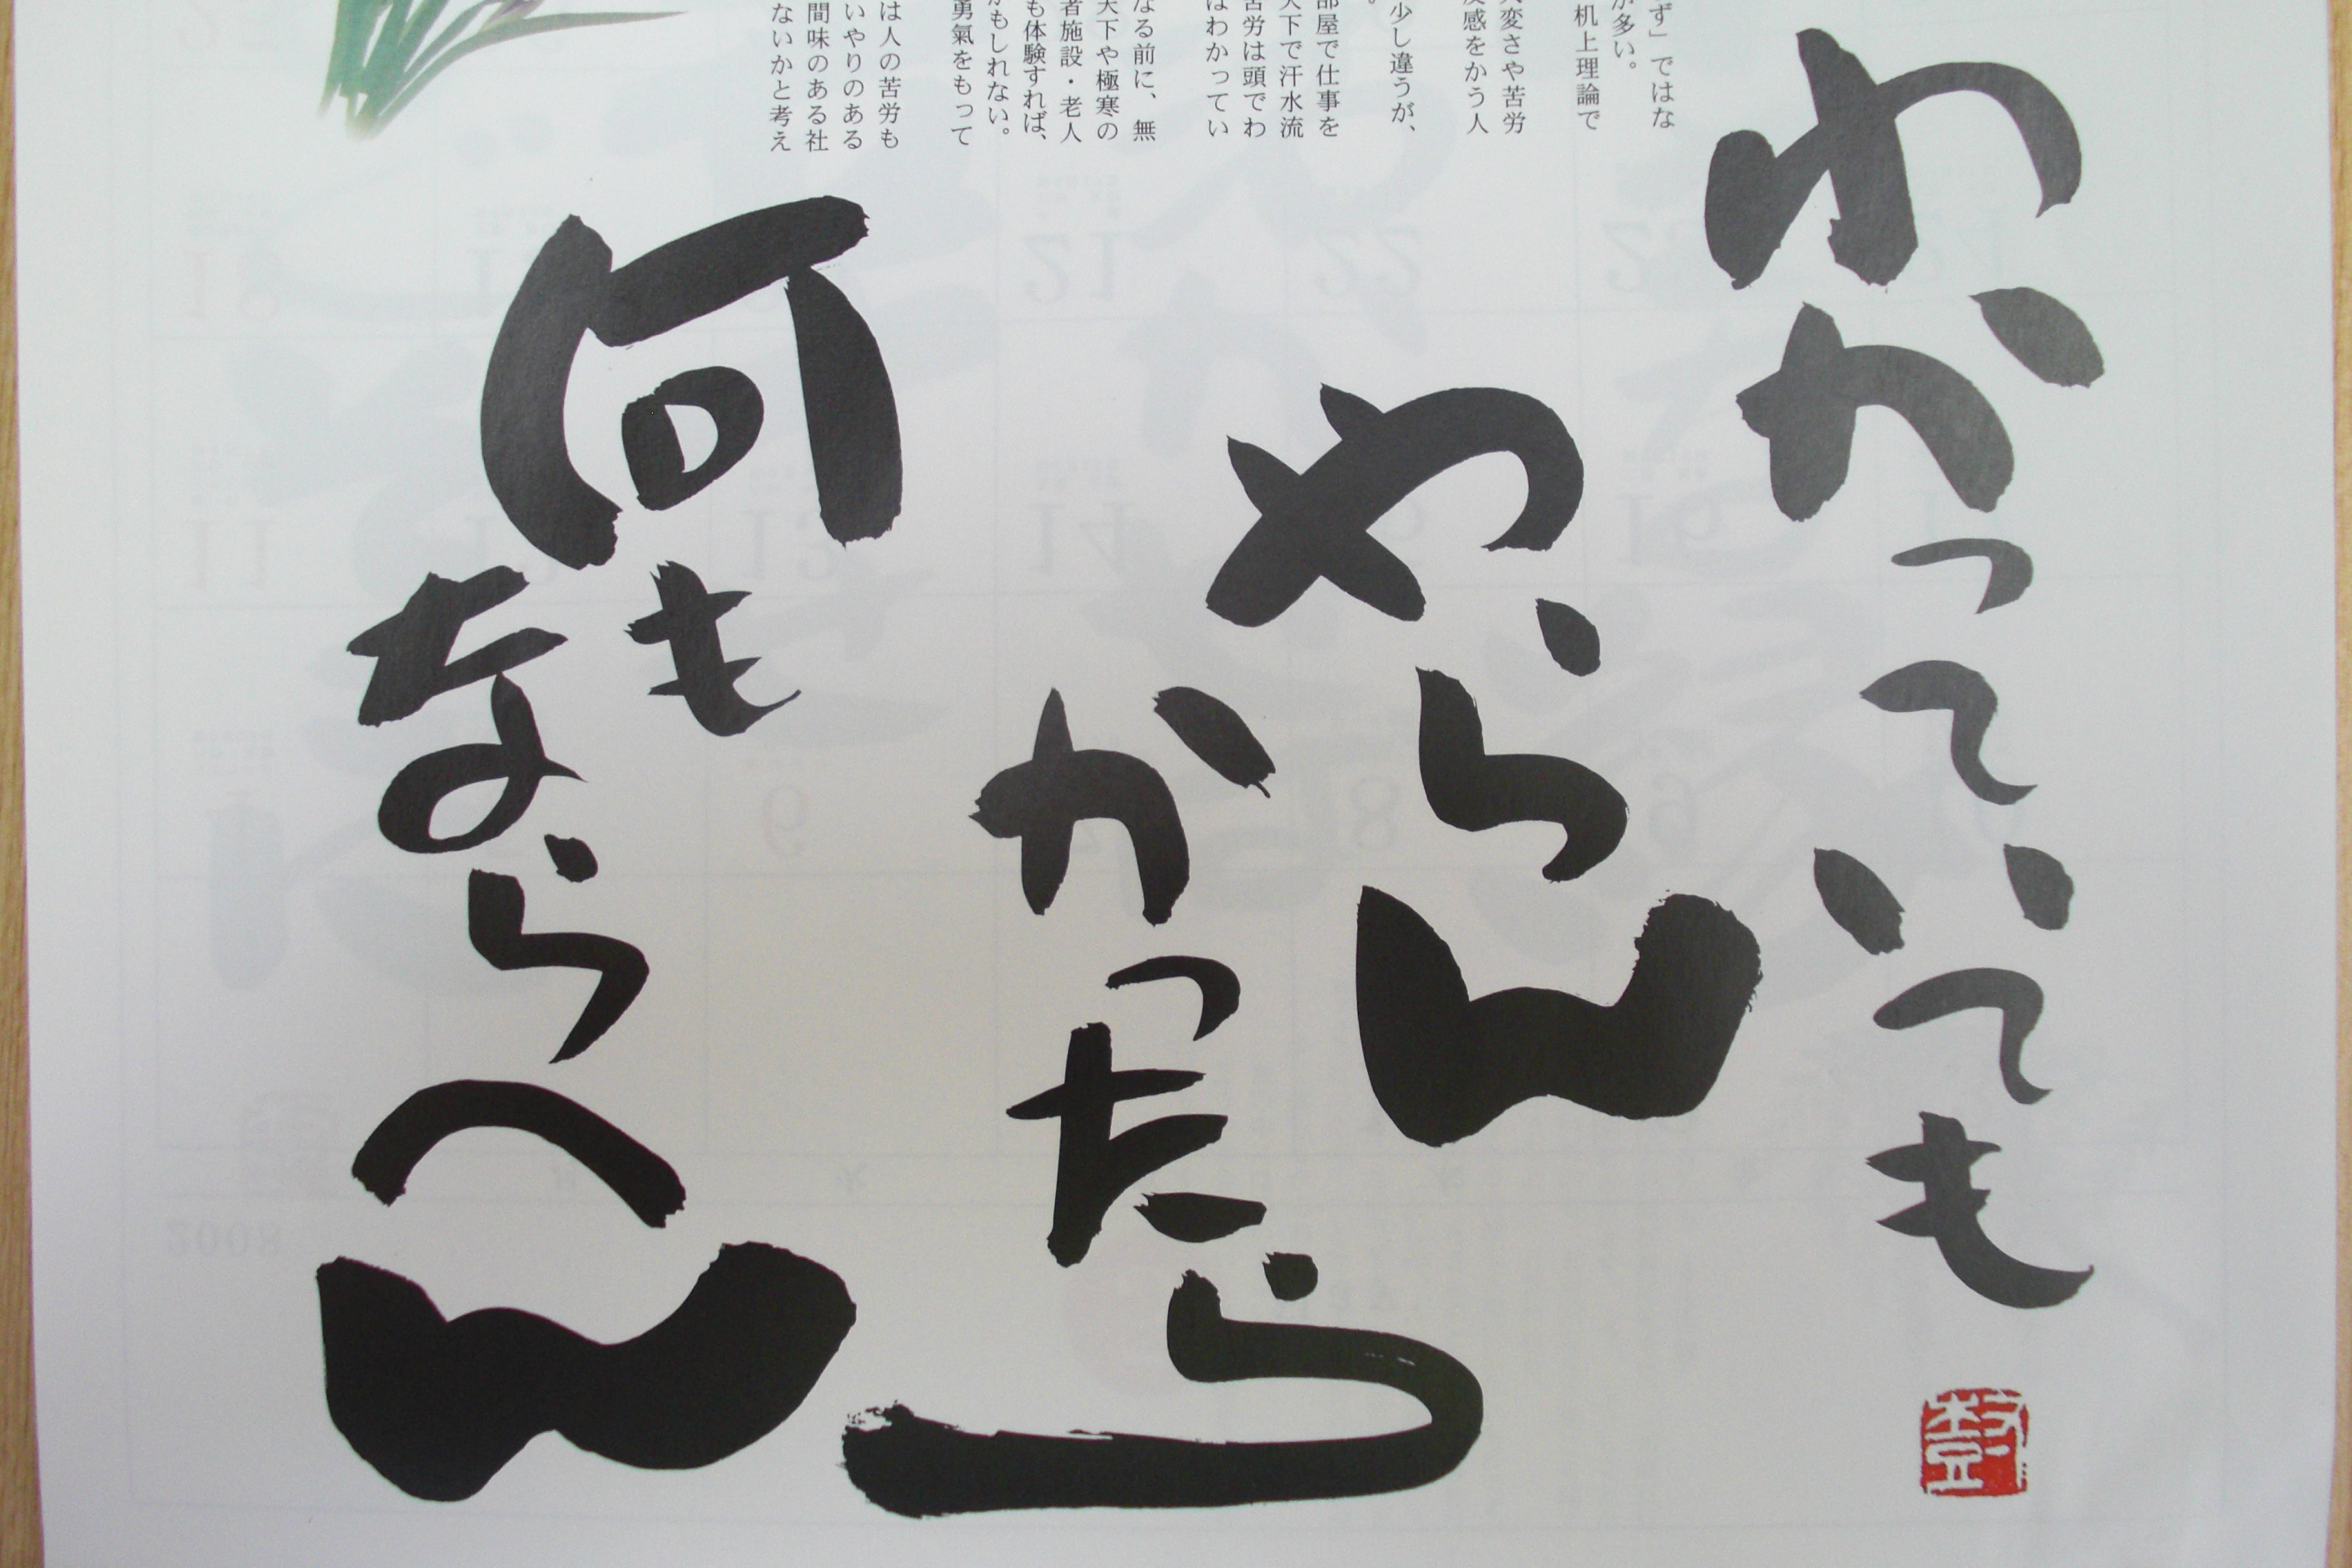 ず」ではな
が多い。
机上理論で
大変さや苦労
反感をかう人
少し違うが、
。
部屋で仕事を
天下で汗水流
苦労は頭でわ
はわかってい
なる前に、無
天下や極寒の
者施設・老人
も体験すれば、
かもしれない。
勇氣をもって
は人の苦労も
いやりのある
間味のある社
ないかと考え
わかっていても
やらん
かったら
何も
ならへん